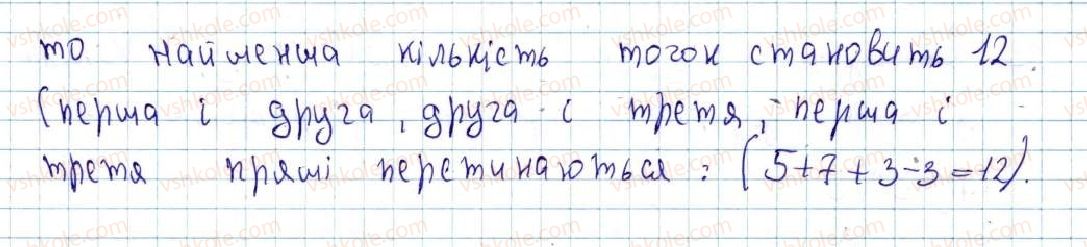 то найменша кількість точок становить 12
(перша і друга, друга і третя, перша і
третя прямі перетинаються: (5+7+3-3=12).